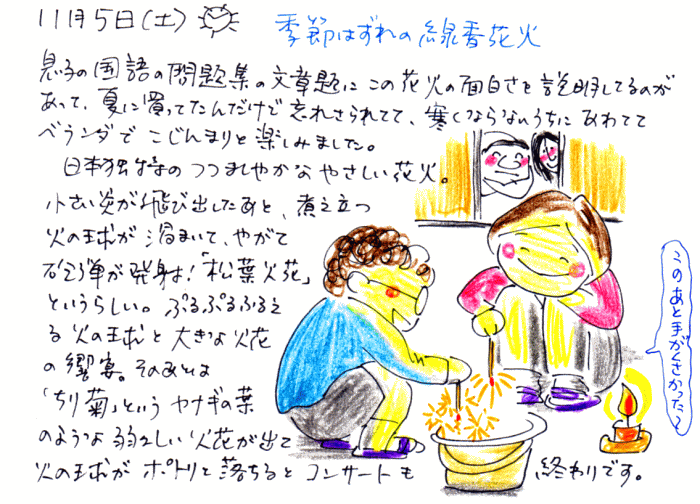 11月5日(土)
季節はずれの線香花火
息子の国語の問題集の文章題に この花火の面白さを説明してるのが
あって、夏に買ってたんだけど忘れさられてて、寒くならないうちに あわてて
ベランダで こじんまりと楽しみました。
日本独特の つつましやかな やさしい花火。
小さい炎が飛び出したあと、煮え立つ
火の球が 渦まいて、やがて
砲弾が発射!「松葉火花」
というらしい。ぷるぷるふるえ
る 火の球と 大きな火花
の饗宴。そのあとは
「ちり菊」という ヤナギの葉
のような 弱々しい火花が出て
火の球が ポトリと 落ちると コンサートも 終わりです。
このあと手がくさかった〜